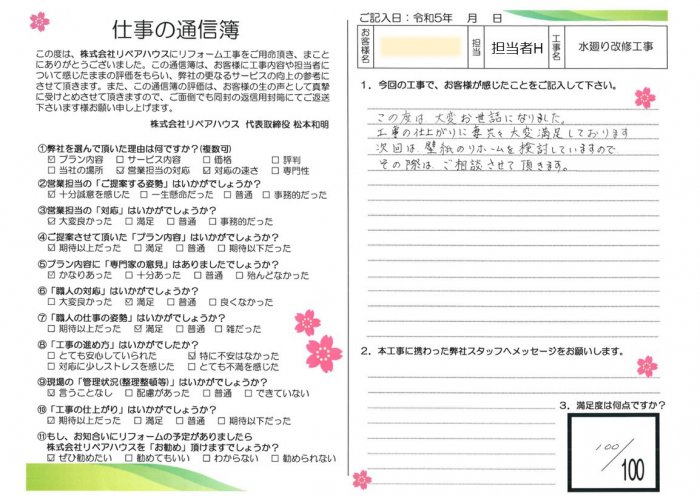 仕事の通信簿
この度は、株式会社リペアハウスにリフォーム工事をご用命頂き、まこと
にありがとうございました。この通信簿は、お客様に工事内容や担当者に
ついて感じたままの評価をもらい、弊社の更なるサービスの向上の参考に
させて頂きます。また、この通信簿の評価は、お客様の生の声として真摯
に受けとめさせて頂きますので、ご面倒でも同封の返信用封筒にてご返送
下さいます様お願い申し上げます。
株式会社リペアハウス 代表取締役 松本和明
①弊社を選んで頂いた理由は何ですか?(複数可)
☑ プラン内容 □ サービス内容 □ 価格 □ 評判
□ 当社の場所 ☑ 営業担当の対応 ☑ 対応の速さ □ 専門性
②営業担当の「ご提案する姿勢」はいかがでしょうか?
☑ 十分誠意を感じた □ 一生懸命だった □ 普通 □ 事務的だった
③営業担当の「対応」はいかがでしょうか?
☑ 大変良かった □ 満足 □ 普通 □ 事務的だった
④ご提案させて頂いた「プラン内容」はいかがでしょうか?
☑ 期待以上だった □ 満足 □ 普通 □ 期待以下だった
⑤プラン内容に「専門家の意見」はありましたでしょうか?
☑ かなりあった □ 十分あった □ 普通 □ 殆んどなかった
⑥「職人の対応」はいかがでしょうか?
□ 大変良かった ☑ 満足 □ 普通 □ 良くなかった
⑦「職人の仕事の姿勢」はいかがでしょうか?
□ 期待以上だった ☑ 満足 □ 普通 □ 雑だった
⑧「工事の進め方」はいかがでしたか?
□ とても安心していられた ☑ 特に不安はなかった
□ 対応に少しストレスを感じた □ とても不満を感じた
⑨現場の「管理状況(整理整頓等)」はいかがでしょうか?
☑ 言うことなし □ 配慮があった □ 普通 □ できていない
⑩「工事の仕上がり」はいかがでしょうか?
☑ 期待以上だった □ 満足 □ 普通 □ 期待以下だった
⑪もし、お知合いにリフォームの予定がありましたら
株式会社リペアハウスを「お勧め」頂けますでしょうか?
☑ ぜひ勧めたい □ 勧めてもいい □ わからない □ 勧められない
ご記入日：令和5年 月 日
お客様名
担当
担当者H
工事名
水廻り改修工事
1．今回の工事で、お客様が感じたことをご記入して下さい。
この度は 大変お世話になりました。
工事の仕上がりに妻共々大変満足しております
次回は 壁紙のリホームを検討していますので
その際は ご相談させて頂きます。
2．本工事に携わった弊社スタッフへメッセージをお願いします。
3．満足度は何点ですか?
100/100